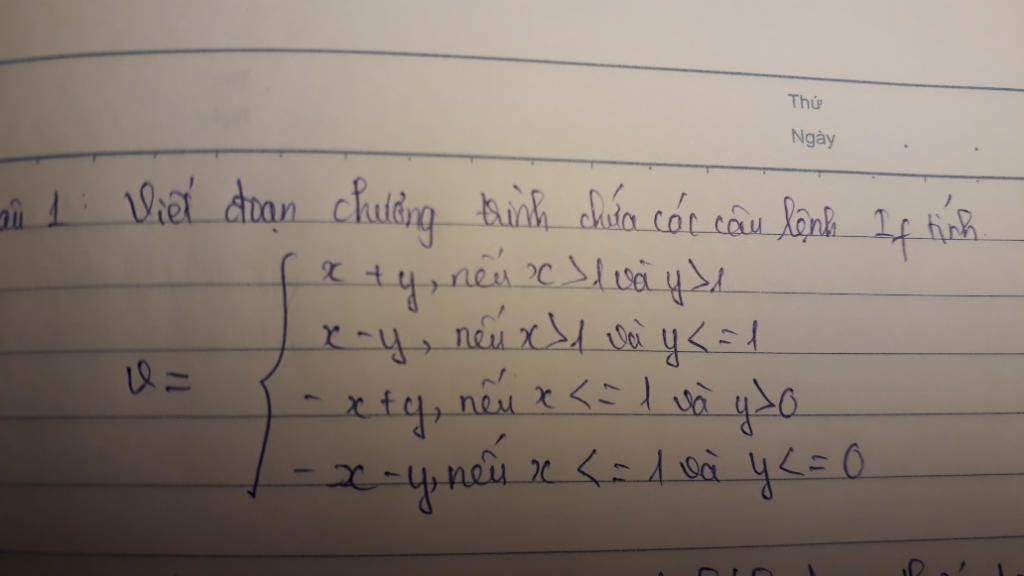 Thứ
Ngày
1: Viết đoạn chương trình chứa các câu lệnh If tính
x + y, nếu x > 1 và y > 1
x - y, nếu x > 1 và y <= 1
v =
- x + y, nếu x <= 1 và y > 0
- x - y, nếu x <= 1 và y <= 0